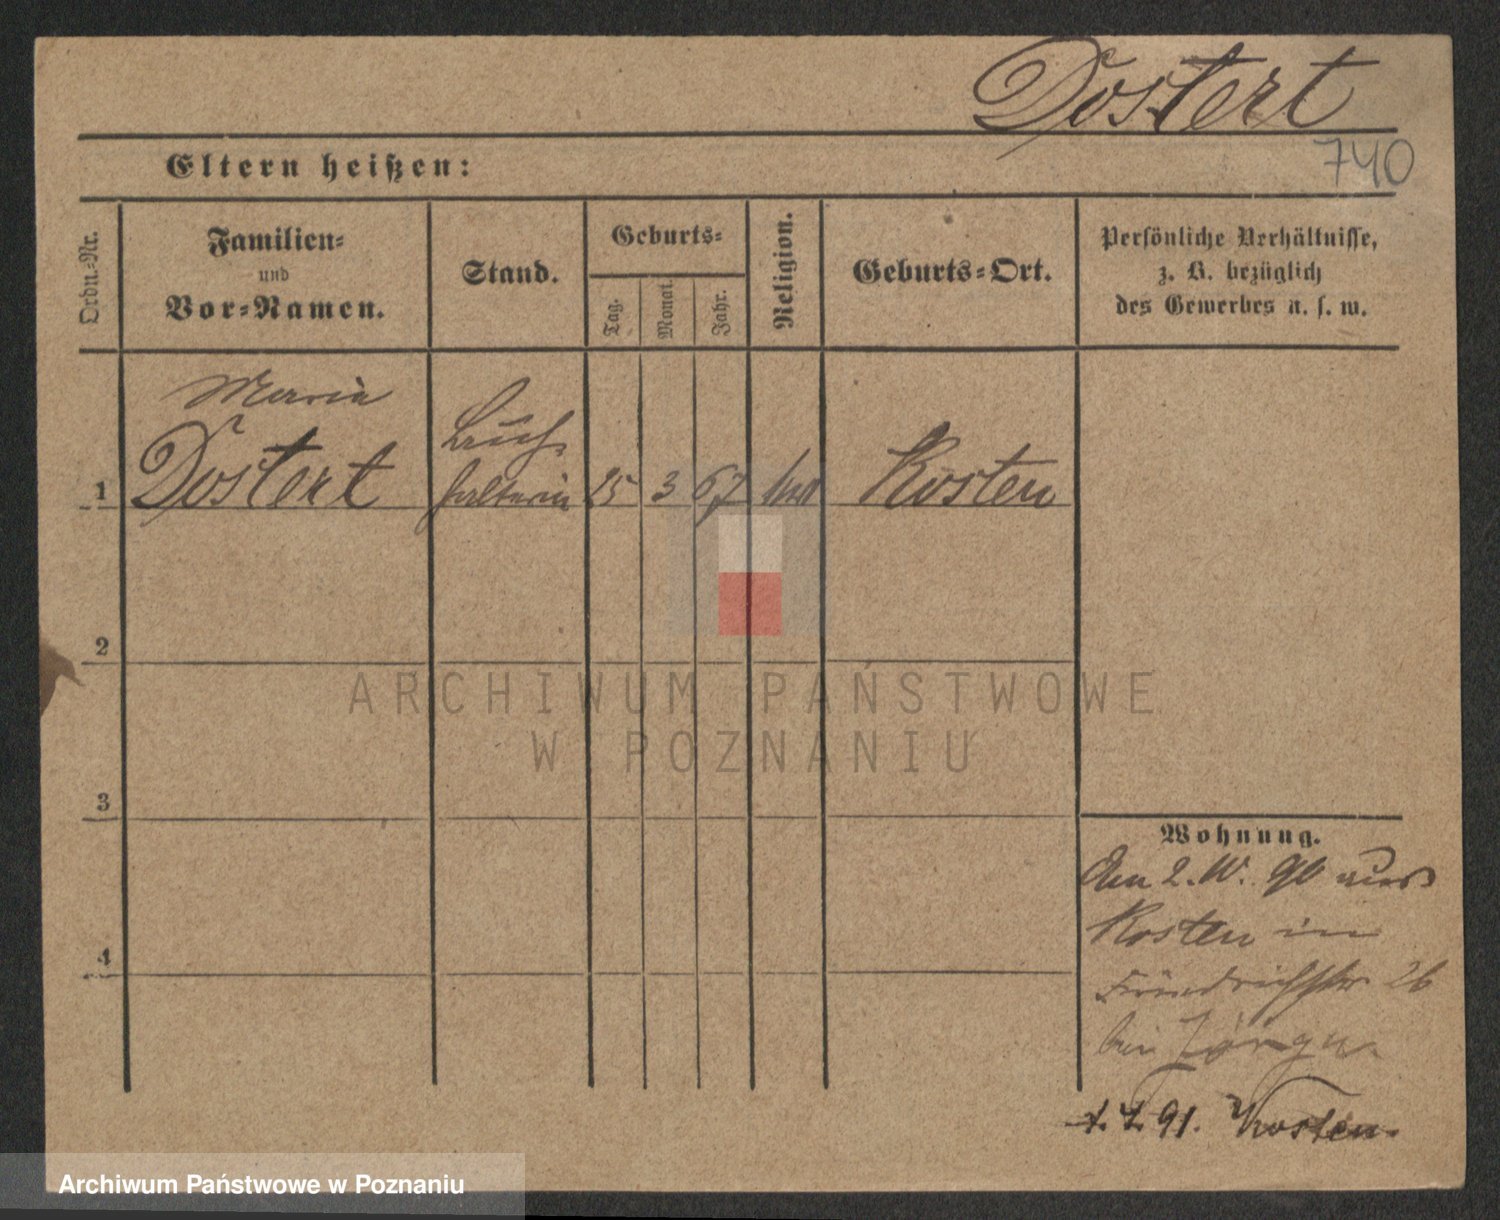 Dostert
740
Eltern heißen:
Ordn.-Nr.
Familien-
und
Vor-Namen.
Stand.
Geburts-
Tag.
Monat.
Jahr.
Religion.
Geburts-Ort.
Persönliche Verhältnisse,
z. B. bezüglich
des Gewerbes u. s. w.
Maria
Dostert
Buch
halterin
25
3
67
Kosten
1
2
3
4
ARCHIWUM PAŃSTWOWE
W POZNANIU
Wohnung.
Am 2. IV. 90 aus
Kosten in
Friedrichstr 26
bei
91. Kosten.
Archiwum Państwowe w Poznaniu